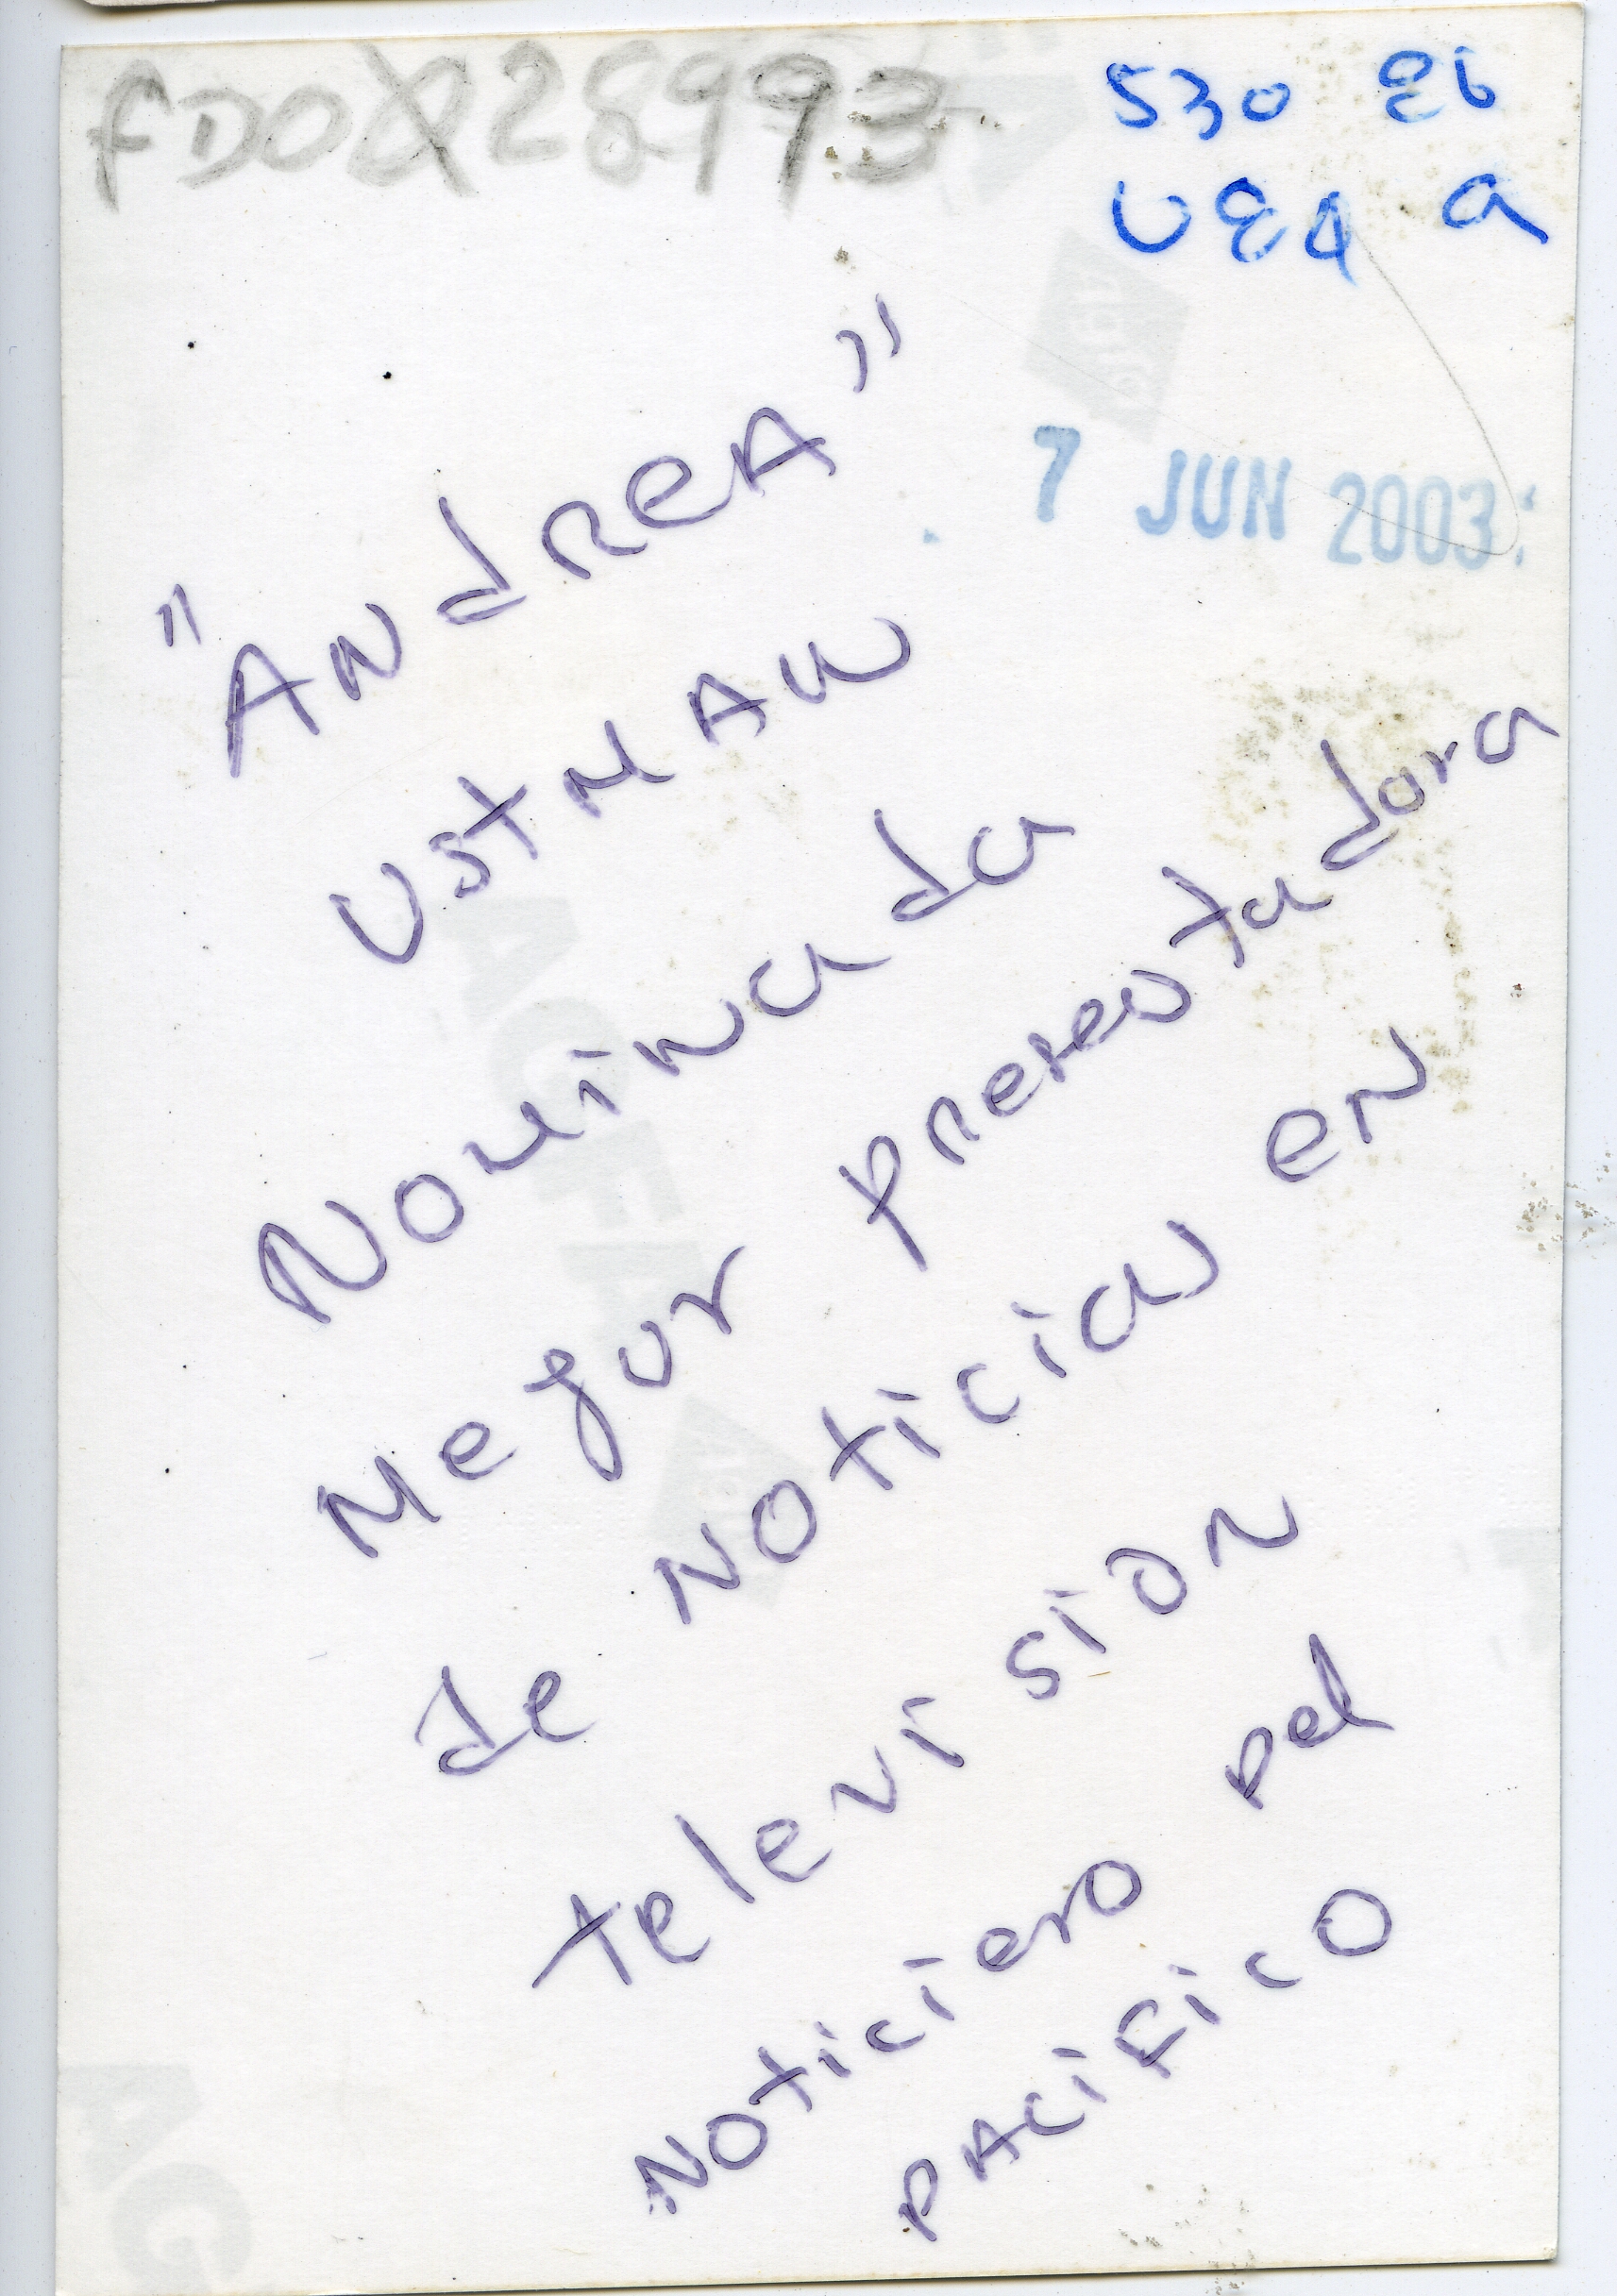 FDO028993
530 86
U84 a
7 JUN 2003
"ANdReA"
USTMAN
Nominada
Mejor presentadora
de Noticias en
television
Noticiero del
PACiFiCO
AGFA